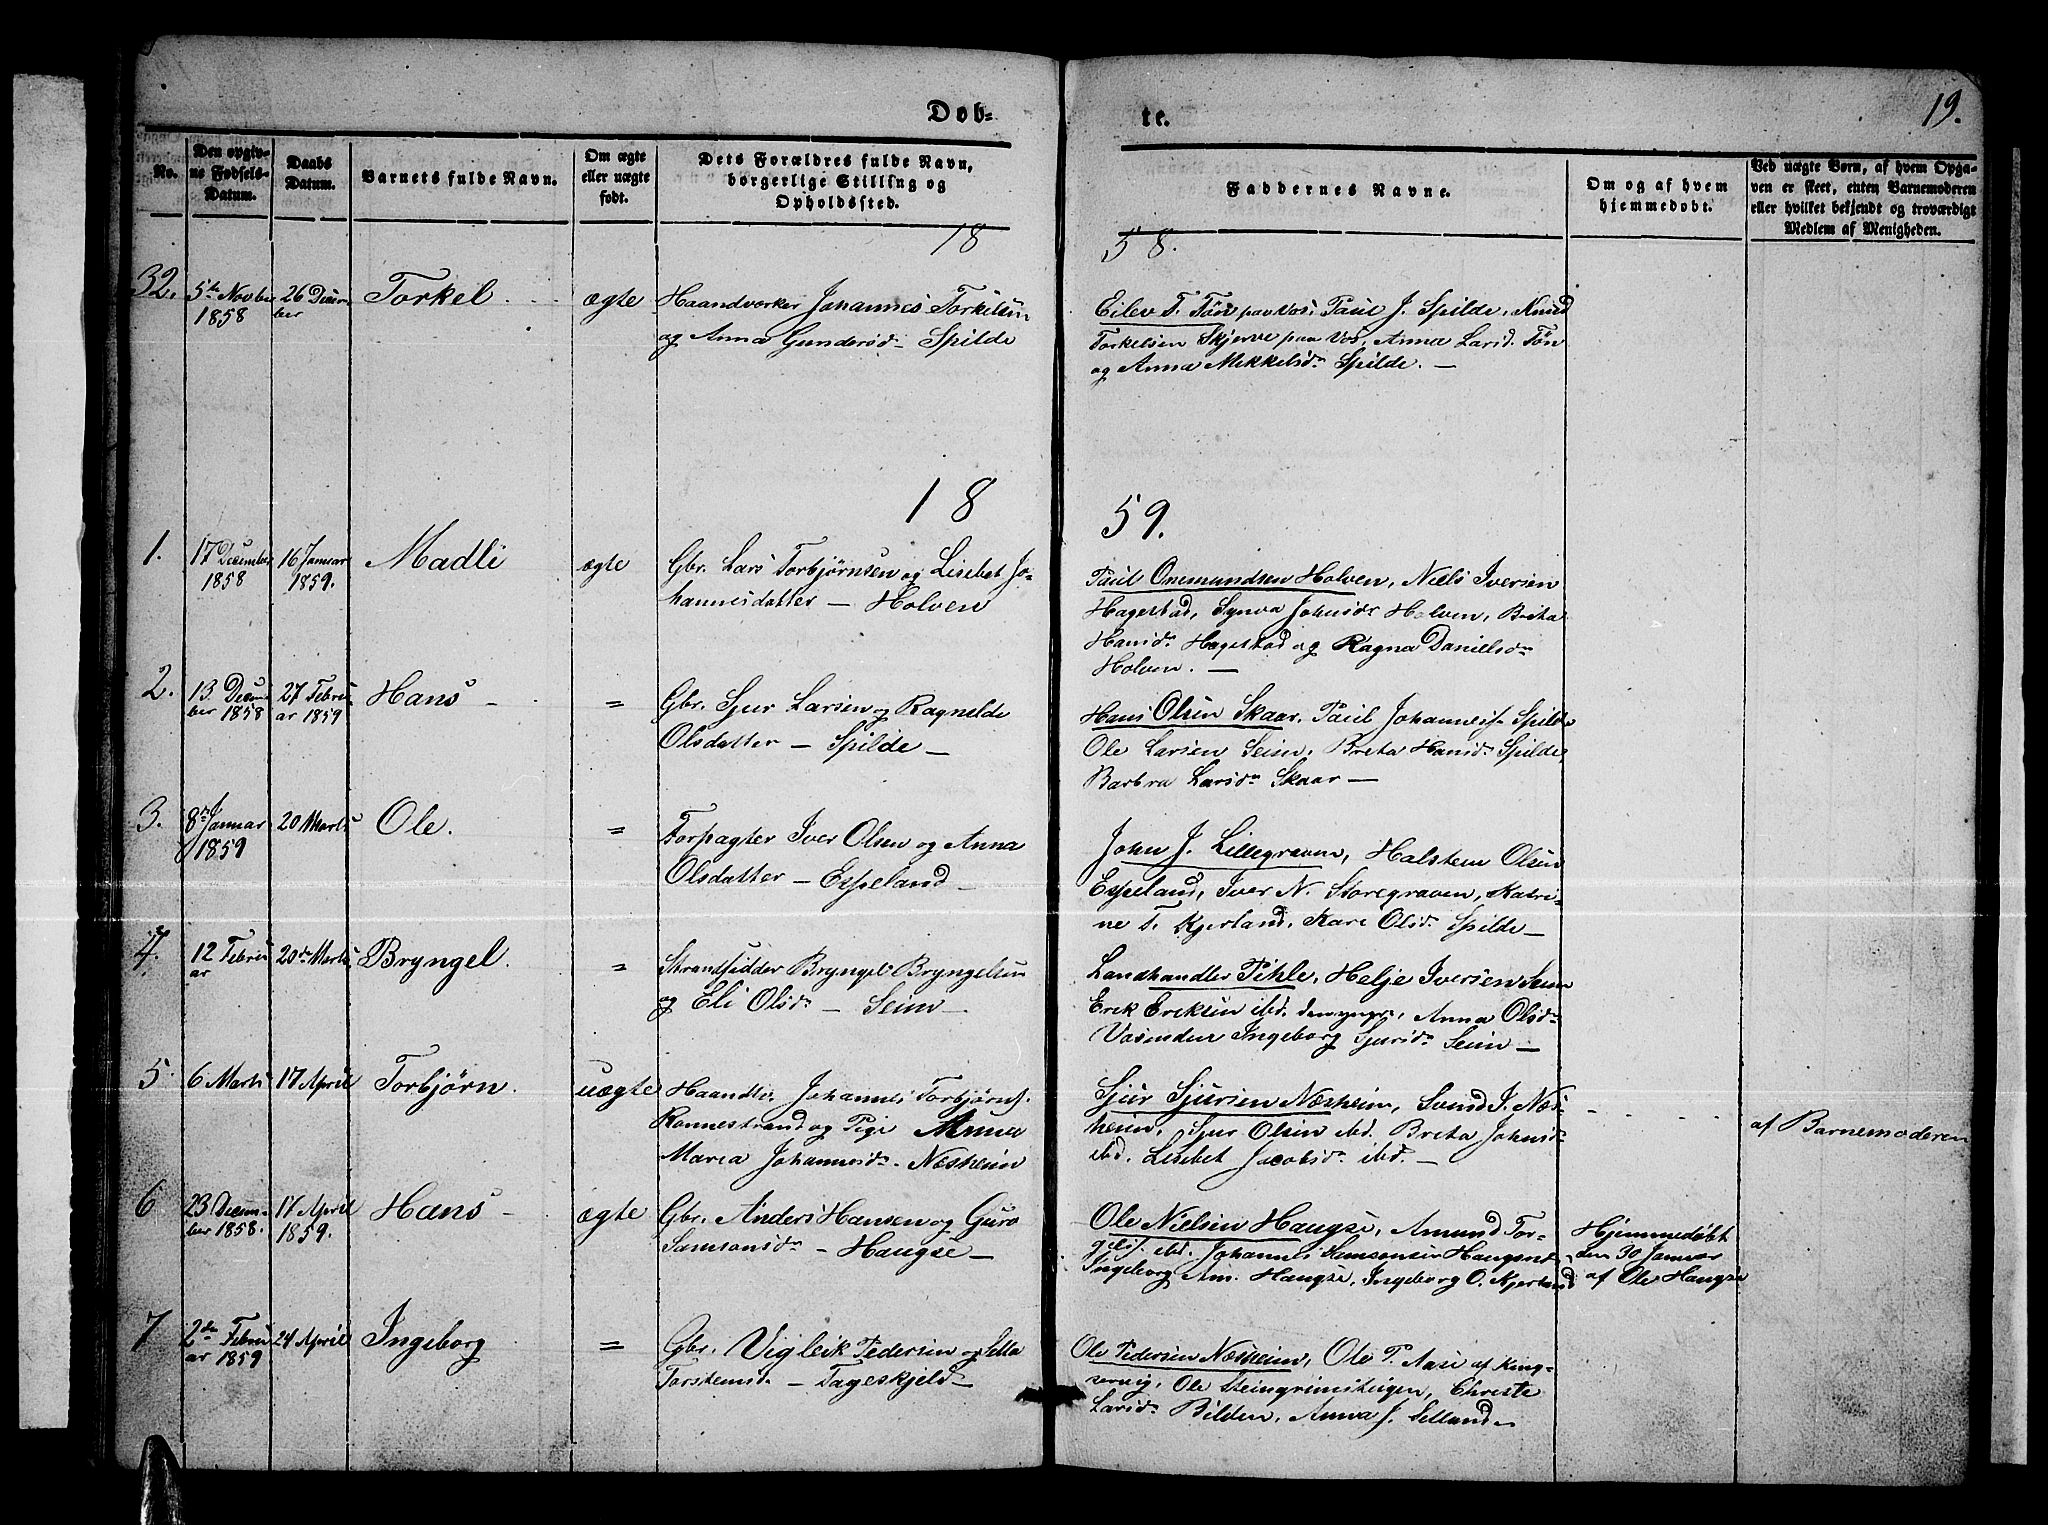 19.
Døb-
te.
No.
Den opgiv-
ne Fødsels-
Datum.
Daabs
Datum.
Barnets fulde Navn.
Om ægte
eller uægte
født.
Dets Forældres fulde Navn,
borgerlige Stilling og
Opholdssted.
Faddernes Navne.
Om og af hvem
hjemmedøbt.
Ved uægte Børn, af hvem Opga-
ven er skeet, enten Barnemoderen
eller hvilket bekjendt og troværdigt
Medlem af Menigheden.
18
58.
32.
5te Novber
1858
26 Decem
ber
Torkel
ægte
Haandværker Johannes Torkelsen
og Anna Gundersd. Spilde
Eilev T. Tøn paa Vos, Paul J. Spilde, Knud
Torkelsen Skjerve paa Vos, Anna Larsd. Tøn
og Anna Mikkelsdr. Spilde. —
18
59.
1.
17 December
1858
16 Januar
1859.
Madli
ægte
Gbr. Lars Torbjørnsen og Lisebet Jo-
hannesdatter — Holven
Paul Onmundsen Holven, Niels Iversen
Hagestad, Synva Johnsdr Holven, Brita
Hansdr. Hagestad og Ragna Danielsdr
Holven. —
2.
13 Decem
ber 1858
27 Febru
ar 1859
Hans —
=
Gbr. Sjur Larsen og Ragnilde
Olsdatter — Spilde —
Hans Olsen Skaar, Paul Johannesf Spilde
Ole Larsen Seim, Brita Hansdr. Spilde,
Barbra Larsdr Skaar —
3.
8de Januar
1859
20 Marts
Ole.
=
Forpagter Iver Olsen og Anna
Olsdatter — Espeland —
John J. Lillegraven, Halstein Olsen
Espeland, Iver N. Storegraven, Katri-
ne T. Kjerland, Kari Olsdr. Spilde —
4.
12 Febru
ar
20de Marts
Bryngel.
=
Strandsidder Bryngel Bryngelsen
og Eli Olsdr — Seim —
Landhandler Pihle, Helje Iversen Seim
Erik Eriksen ibd. den yngr., Anna Olsdr
Vasenden Ingeborg Sjursdr Seim —
5.
6 Marts
17 April
Torbjørn.
uægte
Haandv. Johannes Torbjørnsf.
Rønnestrand og Pige Anna
Maria Johannesdr. Næsheim
Sjur Sjursen Næsheim, Svend J. Næs-
heim, Sjur Olsen ibd. Brita Johnsd
ibd. Lisebet Jacobsdr ibd. —
af Barnemoderen
6
23 Decem-
ber 1858.
17 April
1859.
Hans —
ægte
Gbr. Anders Hansen og Guro
Samsonsdr — Haugse —
Ole Nielsen Haugse, Amund Tor-
gilsf. ibd. Johannes Samsonsen Haugse
Ingeborg Am. Haugse, Ingeborg O. Kjerland
Hjemmedøbt
den 30 Januar
af Ole Haugse
7
2den Febru
ar 1859
24 April
Ingeborg
=
Gbr. Vigleik Pedersen og Sella
Torsteinsd. — Fageskjeld —
Ole Pedersen Næsheim, Ole P. Aase af King-
servig, Ole Steingrimsteigen, Christe
Larsdr Bilden, Anna J. Selland —